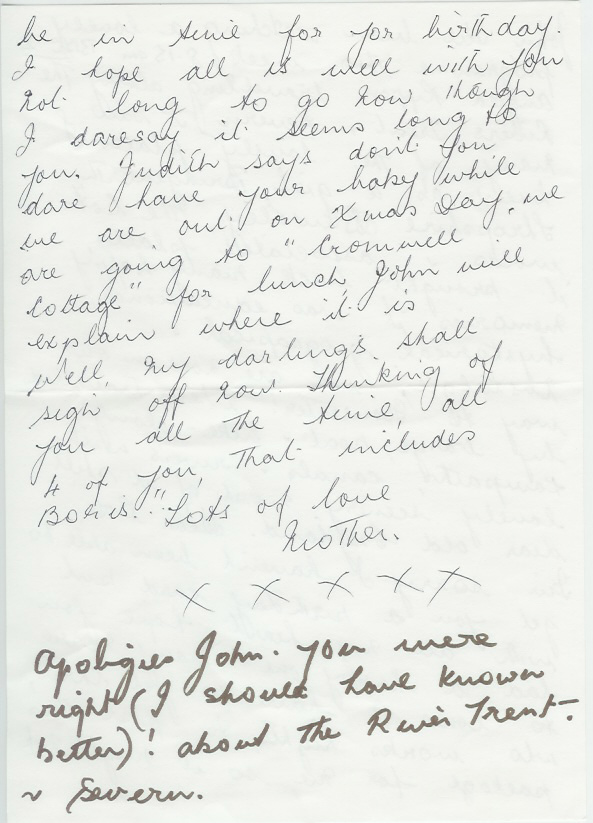 be in time for yor birthday.
I hope all is well with you
not long to go now though
I daresay it seems long to
you. Judith says don't you
dare have your baby while
we are out on Xmas Day, we
are going to "Cromwell
Cottage" for lunch, John will
explain where it is
Well, my darlings shall
sign off now. Thinking of
you all the time, all
4 of you, that includes
Boris!" Lots of love
Mother.
X X X X X
Apologies John. You were
right (I should have known
better)! about the River Trent.
v Severn.